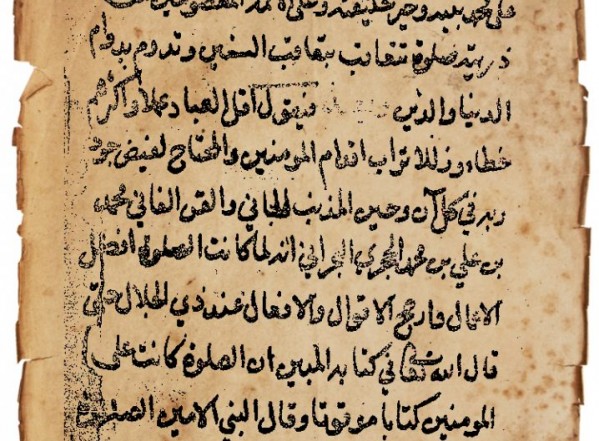 على محمد نبيه وخير خليقته وعلى الائمة المعصومين من
ذريته صلوة تتعاقب بتعاقب السنين وتدوم بدوام
الدنيا والدين فيقول اقل العباد عملا واكثرهم
خطاء وزللا تراب اقدام المومنين والمحتاج لفيض جود
ربه في كل آن وحين المذنب الجاني والقن الفاني محمد
بن علي بن محمد الهجري البحراني انه لما كانت الصلوة افضل
الاعمال وارجح الاقوال والافعال عند ذي الجلال حتى
قال الله تعالى في كتابه المبين ان الصلوة كانت على
المومنين كتابا موقوتا وقال النبي الامين الصلوة